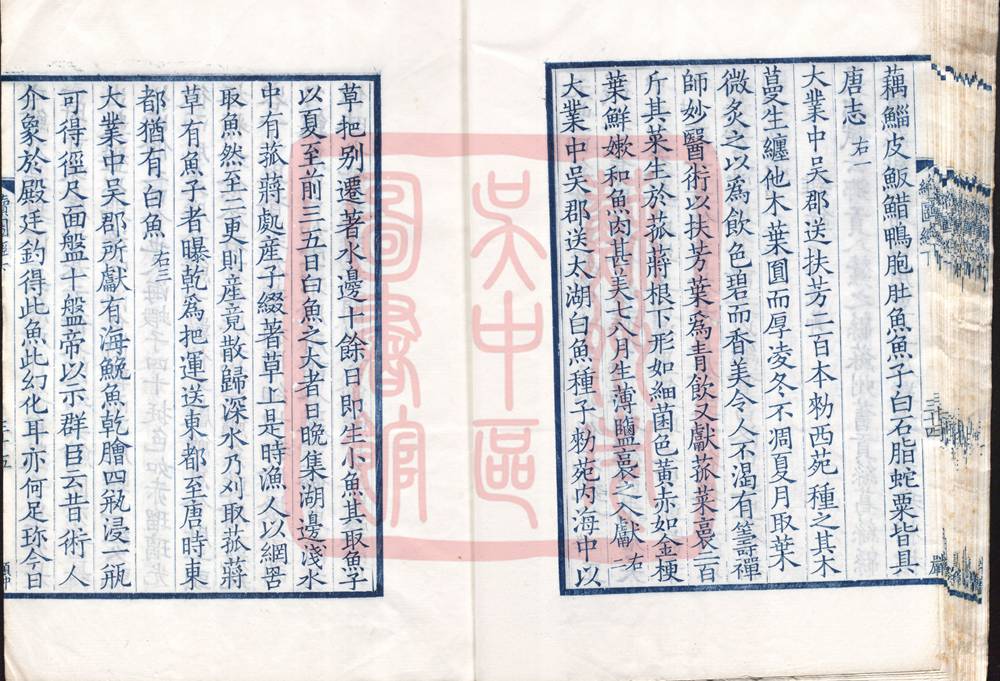 藕鯔皮䱀鱛鴨胞肚魚魚子白石脂蛇粟皆具
唐志右一
大業中吳郡送扶芳二百本勑西苑種之其木
蔓生纏他木葉圓而厚凌冬不凋夏月取葉
微炙之以為飲色碧而香美令人不渴有籌禪
師妙醫術以扶芳葉為青飲又獻菰菜裛二百
斤其菜生於菰蔣根下形如細菌色黃赤如金梗
葉鮮嫩和魚肉甚美七八月生薄鹽裛之入獻右二
大業中吳郡送太湖白魚種子勑苑內海中以
草把别遷著水邊十餘日即生小魚其取魚子
以夏至前三五日白魚之大者日晚集湖邊淺水
中有菰蔣處産子綴著草上是時漁人以網罟
取魚然至二更則産竟散歸深水乃刈取菰蔣
草有魚子者曝乾爲把運送東都至唐時東
都猶有白魚右三
大業中吳郡所獻有海鮸魚乾膾四瓶浸一瓶
可得徑尺面盤十盤帝以示群臣云昔術人
介象於殿廷釣得此魚此幻化耳亦何足珎今日
蘇州市
吳中區
圖書館